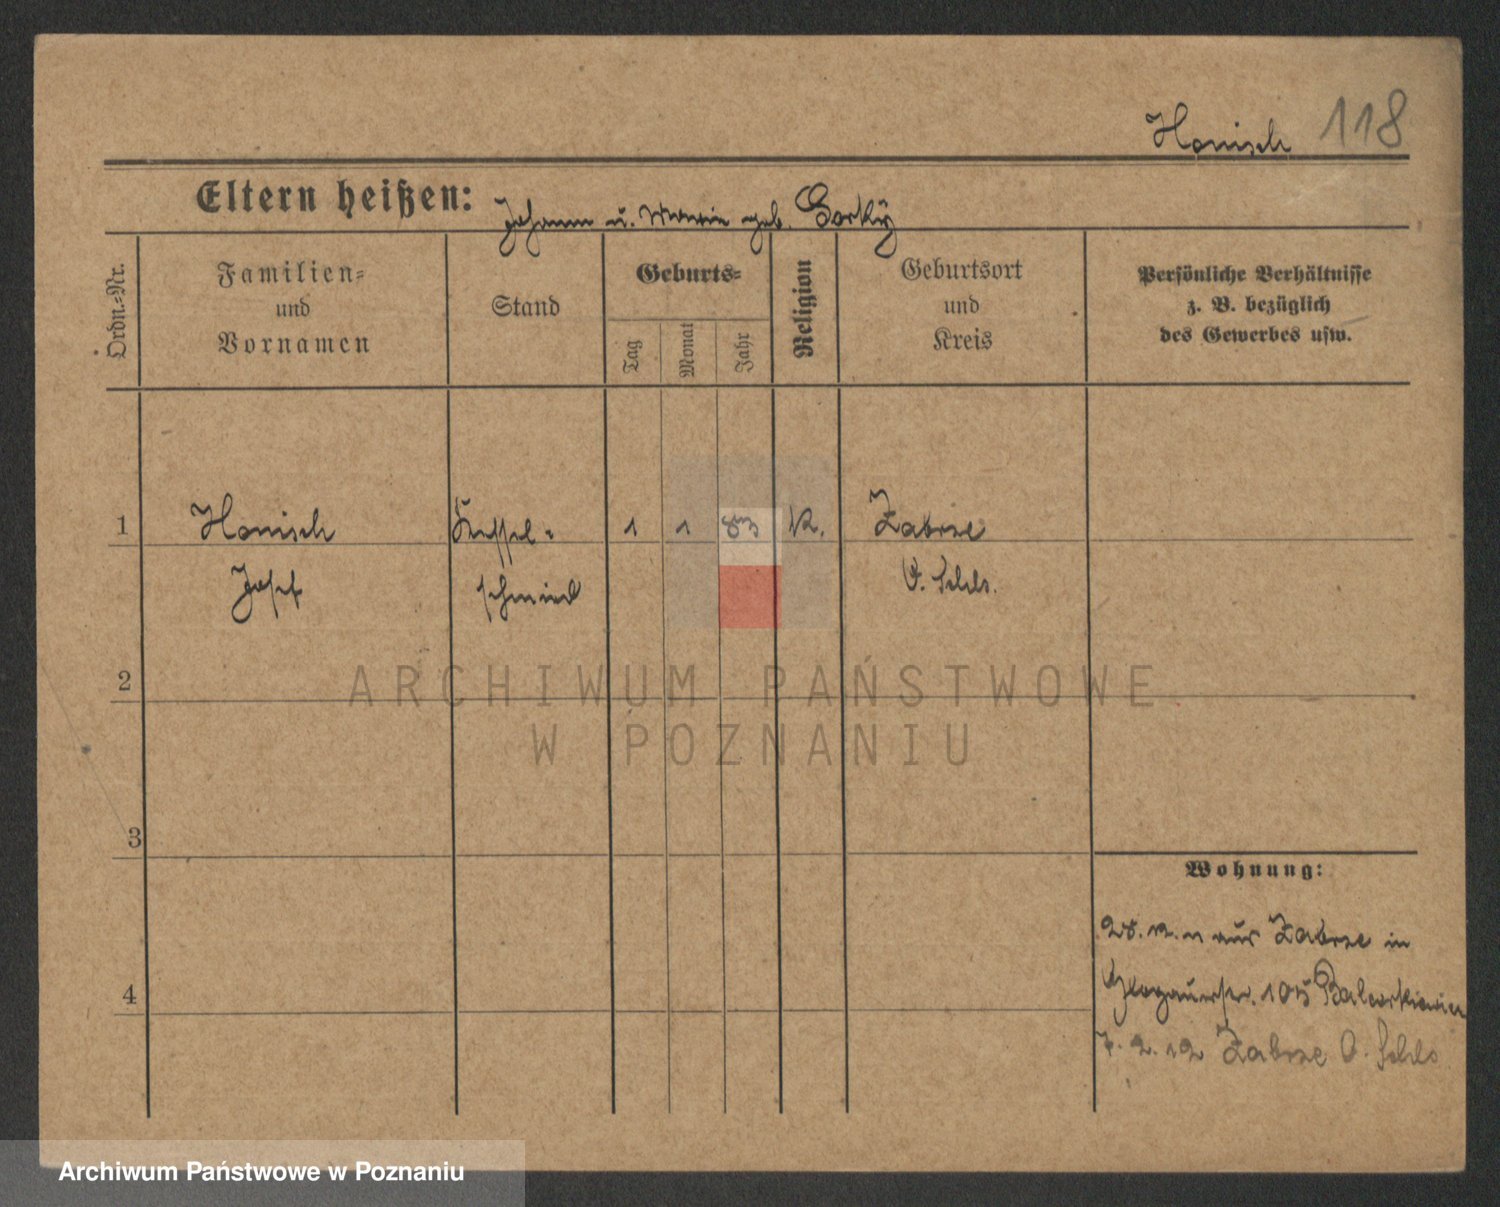 Honisch 118
Eltern heißen: Johann u. Marie geb. Gorky
Ordn.=Nr.
Familien=
und
Vornamen
Stand
Geburts=
Tag
Monat
Jahr
Religion
Geburtsort
und
Kreis
Persönliche Verhältnisse
z. B. bezüglich
des Gewerbes usw.
1 Honisch Kessel= 1 1 83 K. Zabrze
Josef schmied O. Schls.
2
ARCHIWUM PAŃSTWOWE
W POZNANIU
3
Wohnung:
28.12.11 aus Zabrze in
4
Glogauerstr. 105
7.2.12 Zabrze O. Schls
Archiwum Państwowe w Poznaniu